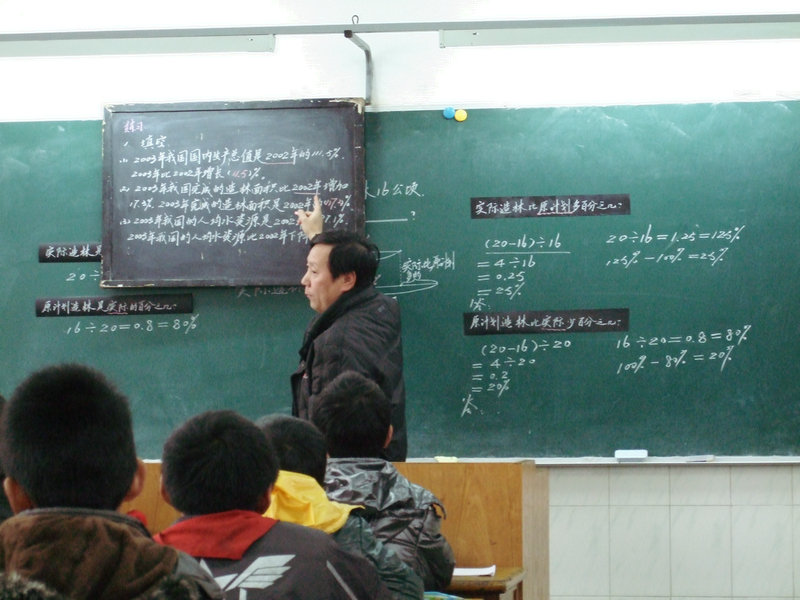 练习
1. 填空
(1) 2003年我国国内生产总值是2002年的111.5%.
2003年比2002年增长(11.5)%.
(2) 2003年我国完成的造林面积比2002年增加
17.9%. 2003年完成的造林面积是2002年的117.9%
(3) 2003年我国的人均水资源是2002年
2003年我国的人均水资源比2002年下降
16公顷.
?
实际造林是
20÷
原计划造林是实际的百分之几?
16÷20=0.8=80%
实际比原计划
实际造林比原计划多百分之几?
(20-16)÷16
=4÷16
=0.25
=25%
答:
20÷16=1.25=125%
125%-100%=25%
原计划造林比实际少百分之几?
(20-16)÷20
=4÷20
=0.2
=20%
答:
16÷20=0.8=80%
100%-80%=20%